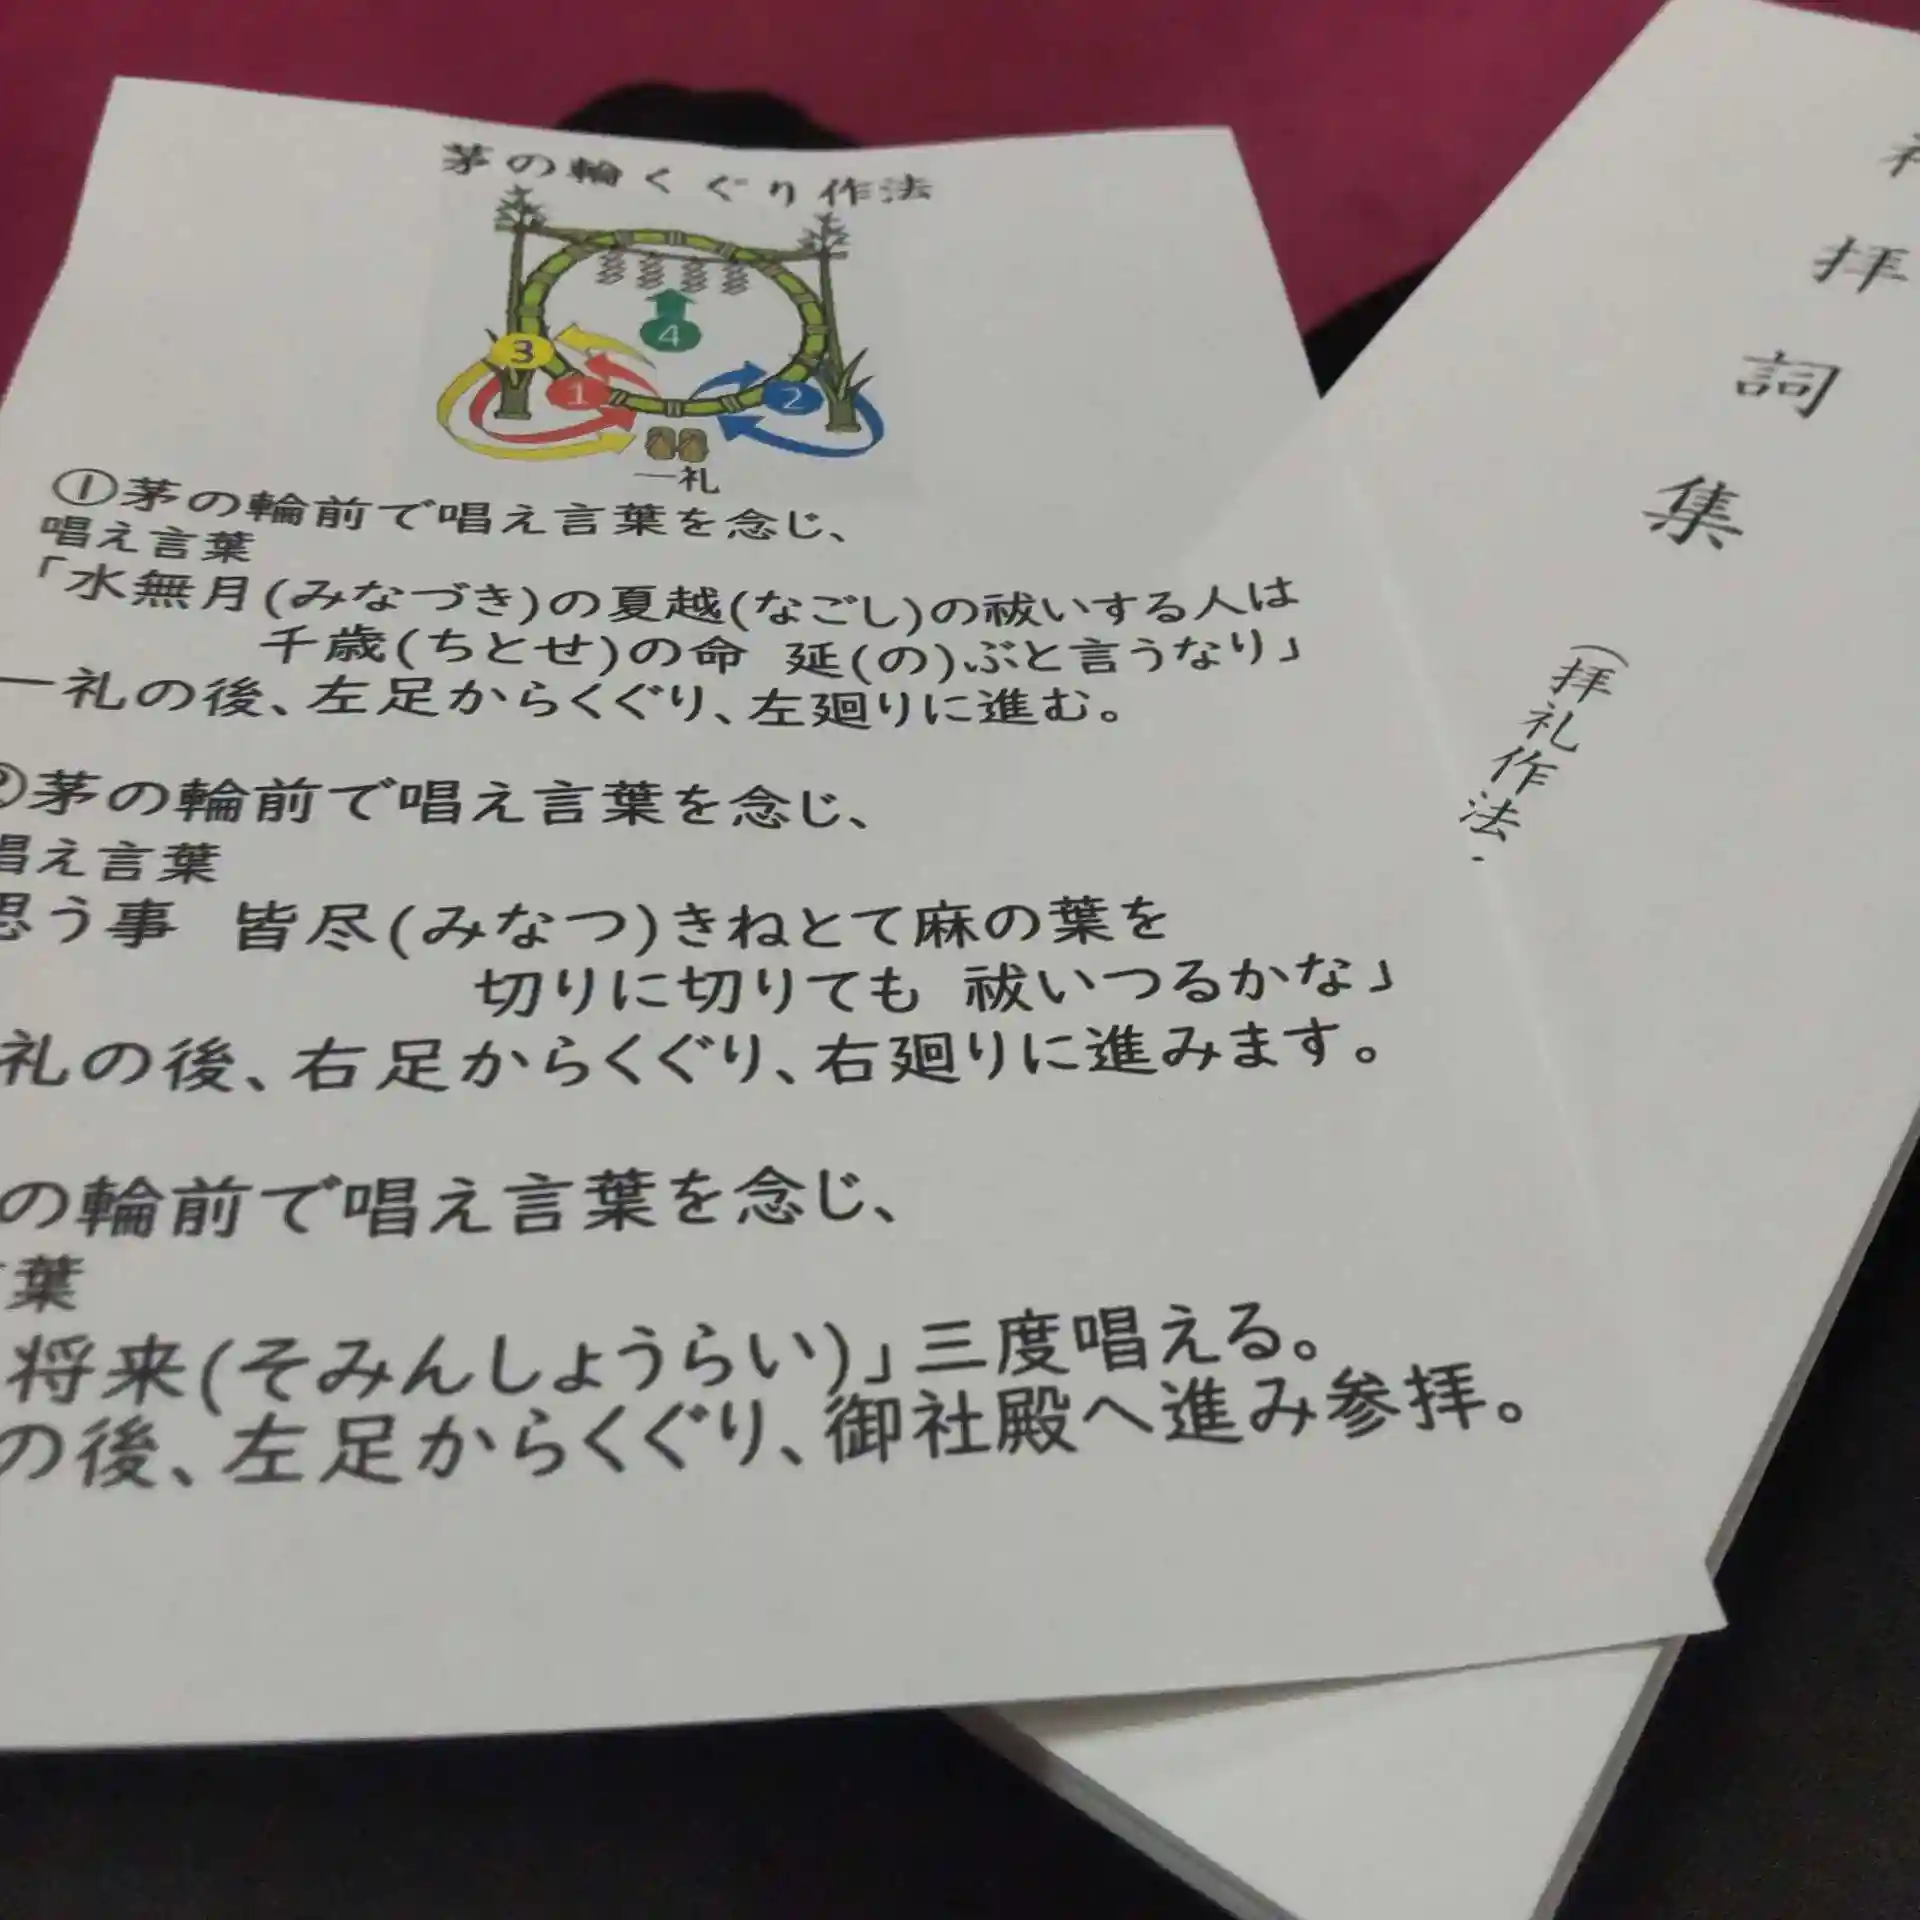 茅の輪くぐり作法
4
3
1
2
一礼
①茅の輪前で唱え言葉を念じ、
唱え言葉
「水無月(みなづき)の夏越(なごし)の祓いする人は
千歳(ちとせ)の命 延(の)ぶと言うなり」
一礼の後、左足からくぐり、左廻りに進む。
②茅の輪前で唱え言葉を念じ、
唱え言葉
思う事 皆尽(みなつ)きねとて麻の葉を
切りに切りても 祓いつるかな」
礼の後、右足からくぐり、右廻りに進みます。
の輪前で唱え言葉を念じ、
葉
将来(そみんしょうらい)」三度唱える。
の後、左足からくぐり、御社殿へ進み参拝。
拝詞集
(拝礼作法・